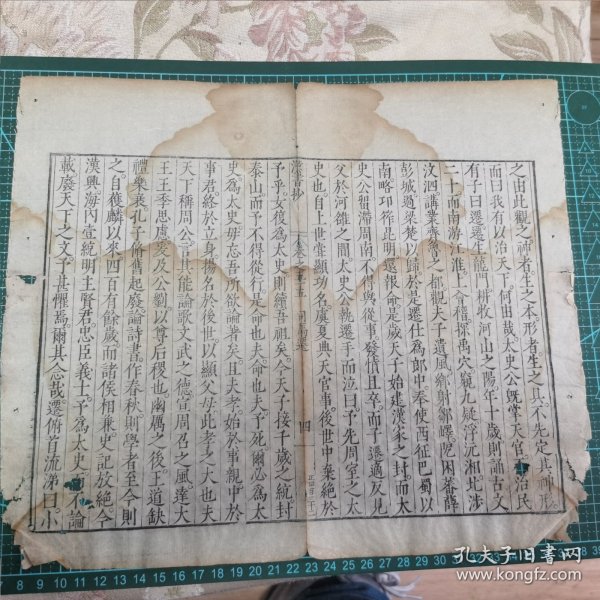 之由此觀之神者生之本形者生之具不先定其神形
而曰我有以治天下何由哉太史公旣掌天官不治民
有子曰遷遷生龍門耕牧河山之陽年十歲則誦古文
二十而南游江淮上會稽探禹穴窺九疑浮沅湘北涉
汶泗講業齊魯之都觀夫子遺風鄉射鄒嶧阸困蕃薛
彭城過梁楚以歸於是遷仕爲郎中奉使西征巴蜀以
南略邛筰昆明還報命是歲天子始建漢家之封而太
史公留滯周南不得與從事發憤且卒而子遷適反見
父於河雒之間太史公執遷手而泣曰予先周室之太
史也自上世嘗顯功名虞夏典天官事後世中衰絕於
漢書抄
卷
四
予乎女復爲太史則續吾祖矣今天子接千歲之統封
泰山而予不得從行是命也夫命也夫予死爾必爲太
史爲太史毋忘吾所欲論著矣且夫孝始於事親中於
事君終於立身揚名於後世以顯父母此孝之大也夫
天下稱周公言其能論歌文武之德宣周召之風達大
王王季思慮爰及公劉以尊后稷也幽厲之後王道缺
禮樂衰孔子脩舊起廢論詩書作春秋則學者至今則
之自獲麟以來四百有餘歲而諸侯相兼史記放絕今
漢興海內壹統明主賢君忠臣義士予爲太史而不論
載廢天下之文予甚懼焉爾其念哉遷俯首流涕曰小
8 9 10 11 12 13 14 15 16 17 18 19 20 21 22 23 24 25 26 27 28 29 30 31 32 33 34 35 36 37 38 39
孔夫子旧书网
www.kongfz.com